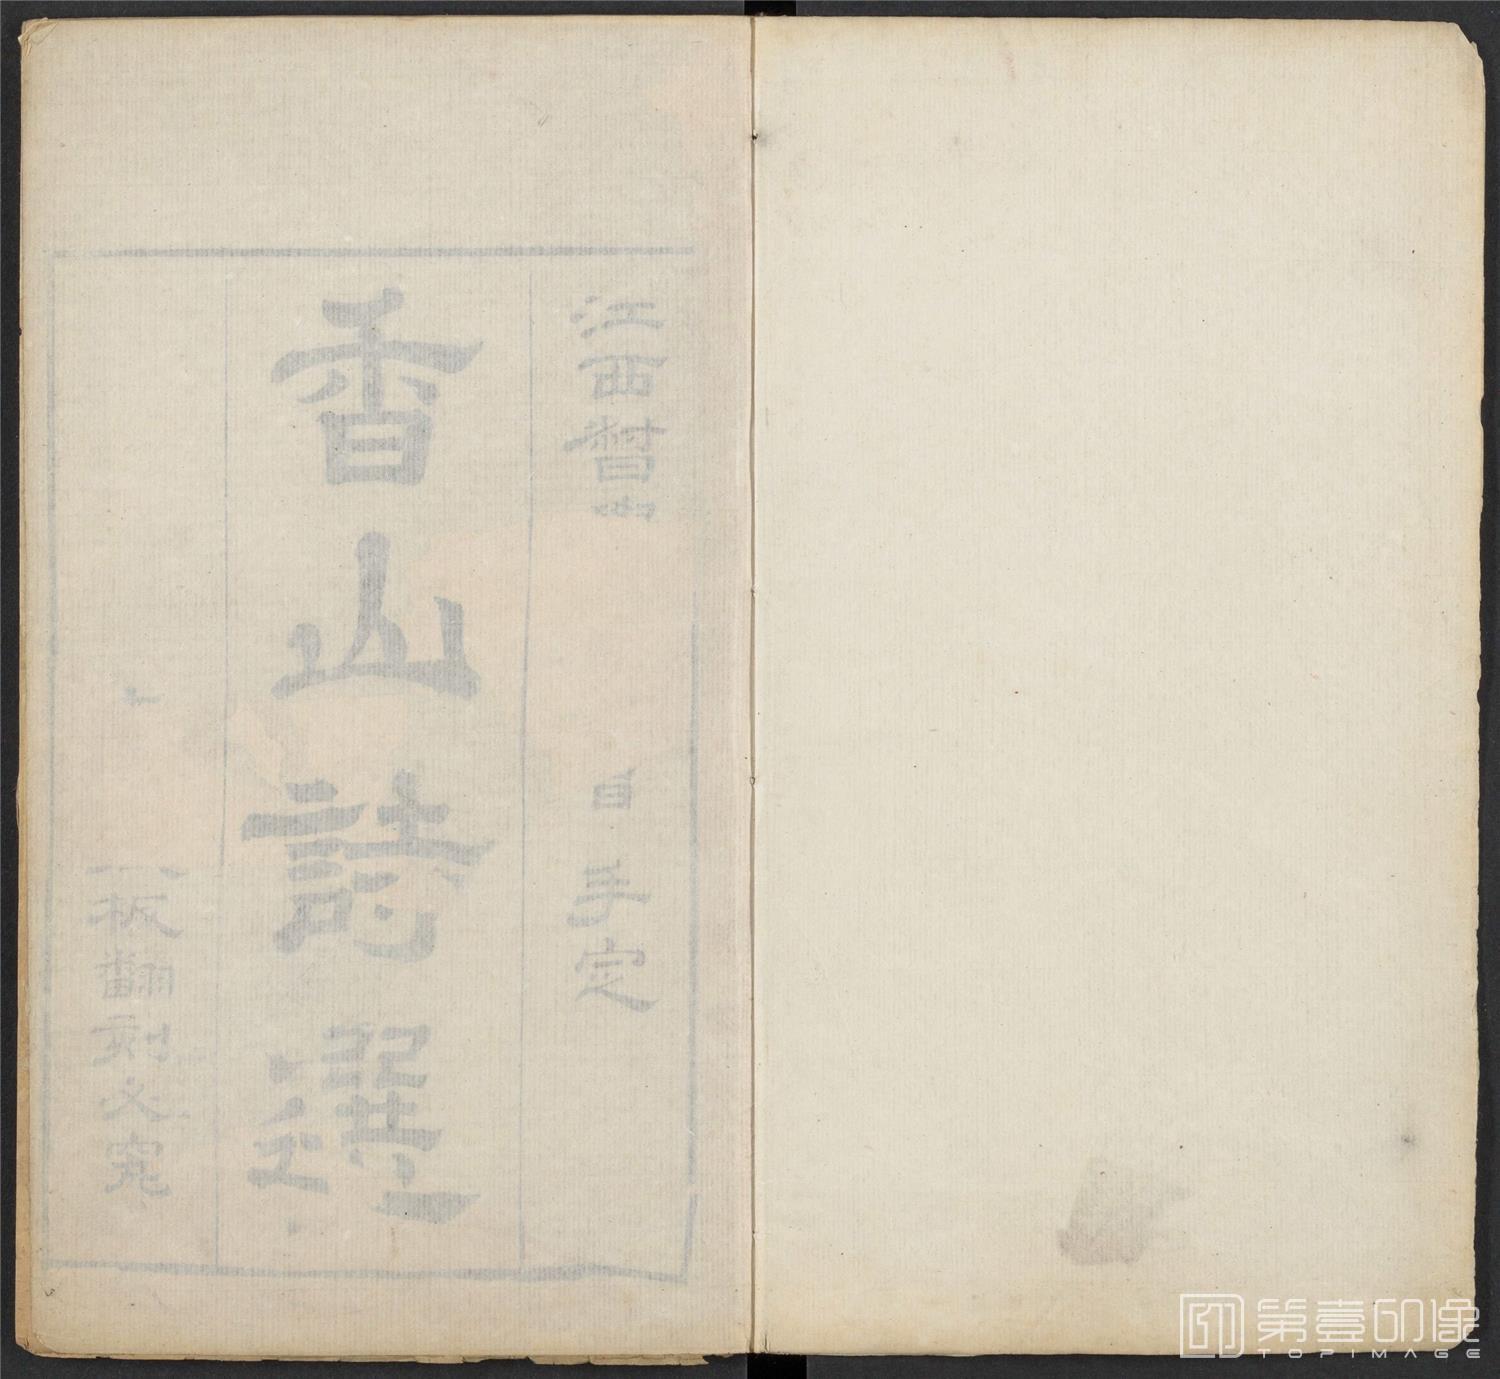 江西督
自手定
香山詩選
板翻刻必究
第壹印像
TOPIMAGE